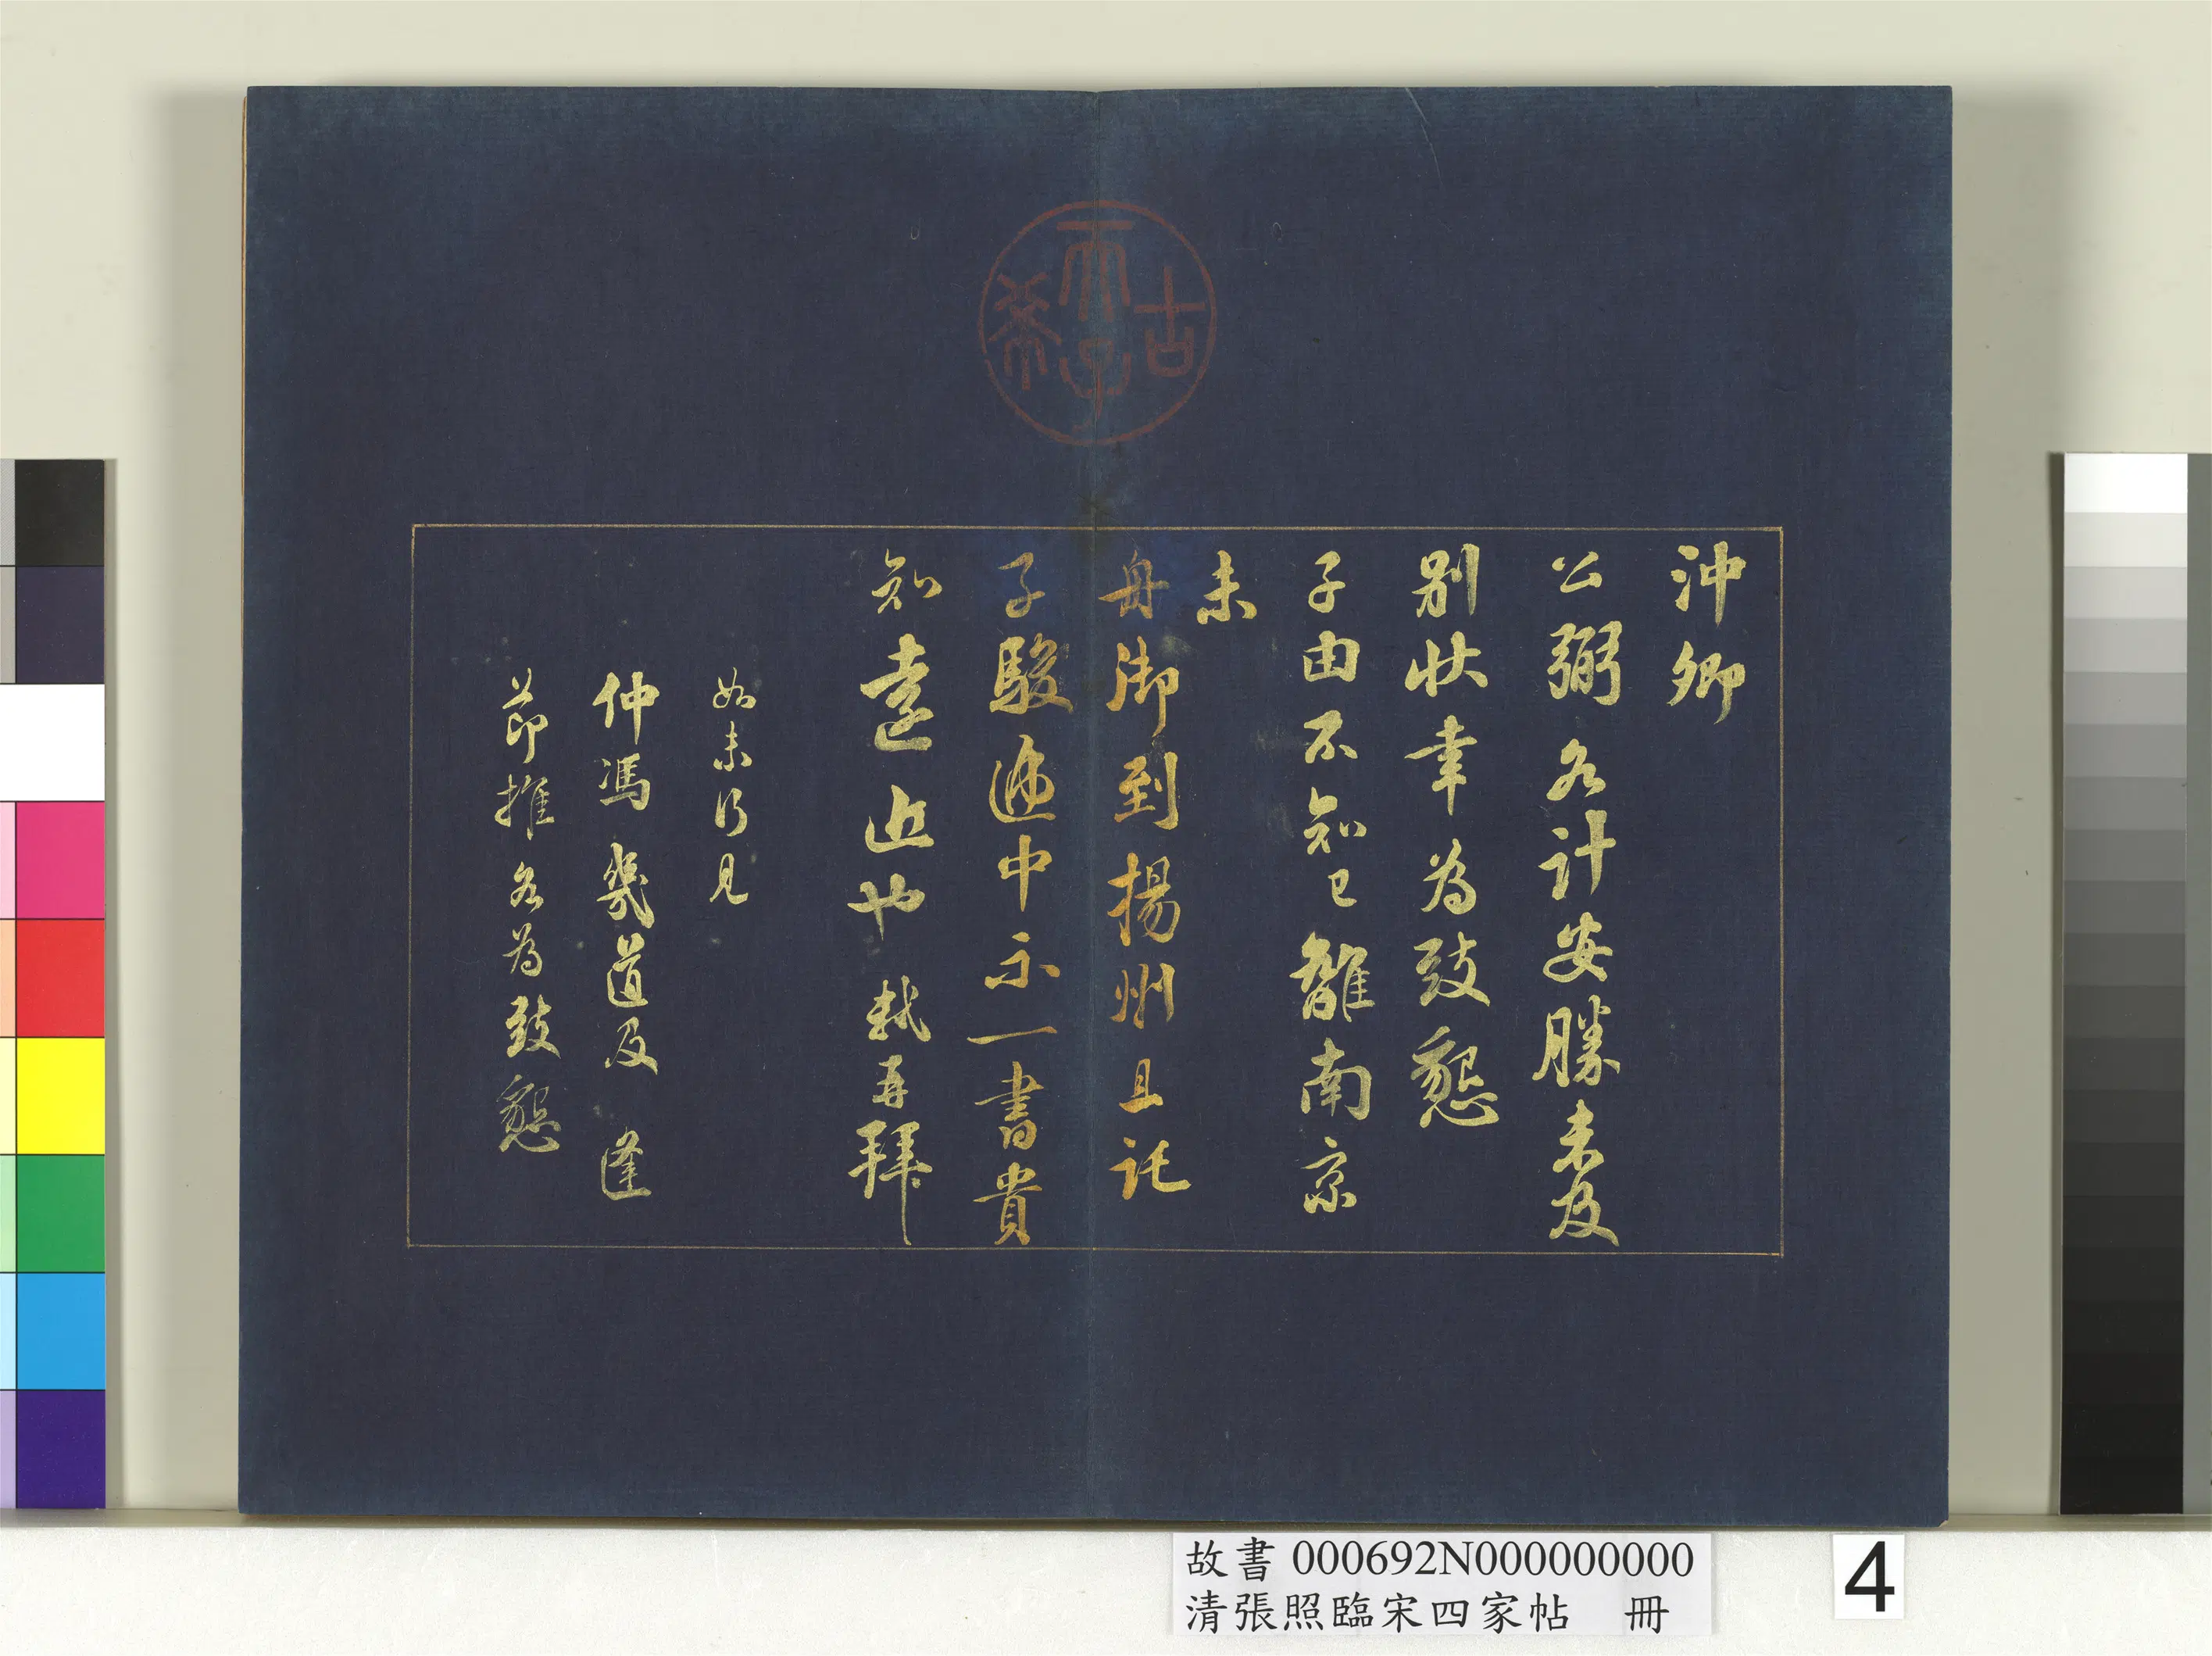 沖卿
公弼各計安勝未及
別狀幸為致懇
子由不知已離南京
未
舟御到揚州且託
子駿遞中示一書貴
知遠近也軾再拜
如未行見
仲馮幾道及 逢
節推各為致懇
古
天子
希
故書 000692N000000000
清張照臨宋四家帖 冊
4